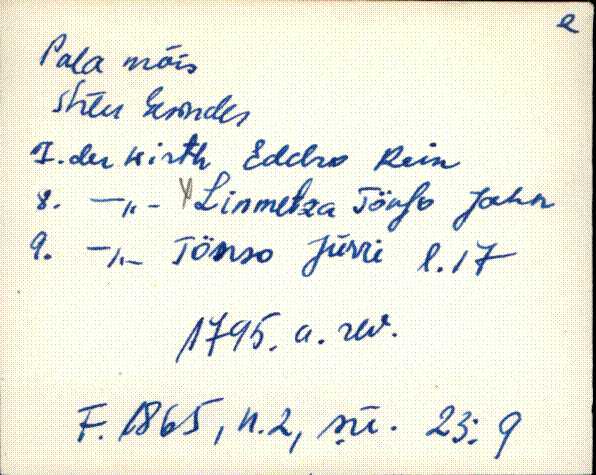 e
Pala mõis
7. der Wirth Eddro Rein
8. —„— Linmetza Tönso Jahn
9. —„— Tönso Jürri l. 17
1795. a. rev.
F. 1865, n. 2, sü. 23: 9